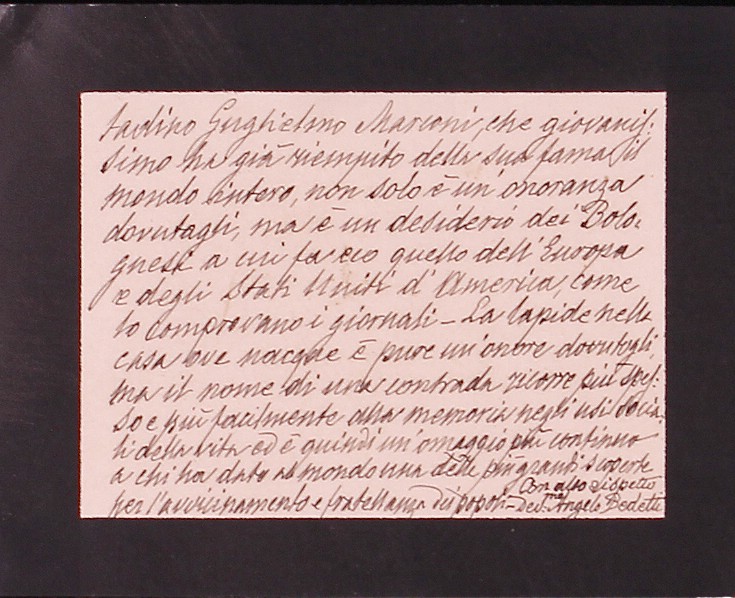 tadino Guglielmo Marconi, che giovanis:
simo ha già riempito della sua fama il
mondo intero, non solo è un'onoranza
dovutagli, ma è un desiderio dei Bolo:
gnesi a cui fa eco quello dell'Europa
e degli Stati Uniti d'America, come
lo comprovano i giornali – La lapide nella
casa ove nacque è pure un'onore dovutogli,
ma il nome di una contrada ricorre più spes:
so e più facilmente alla memoria negli usi socia:
li della vita ed è quindi un omaggio più continuo
a chi ha dato al mondo una delle più grandi scoperte
per l'avvicinamento e fratellanza dei popoli –
Con alto rispetto
Dev.mo Angelo Bedetti